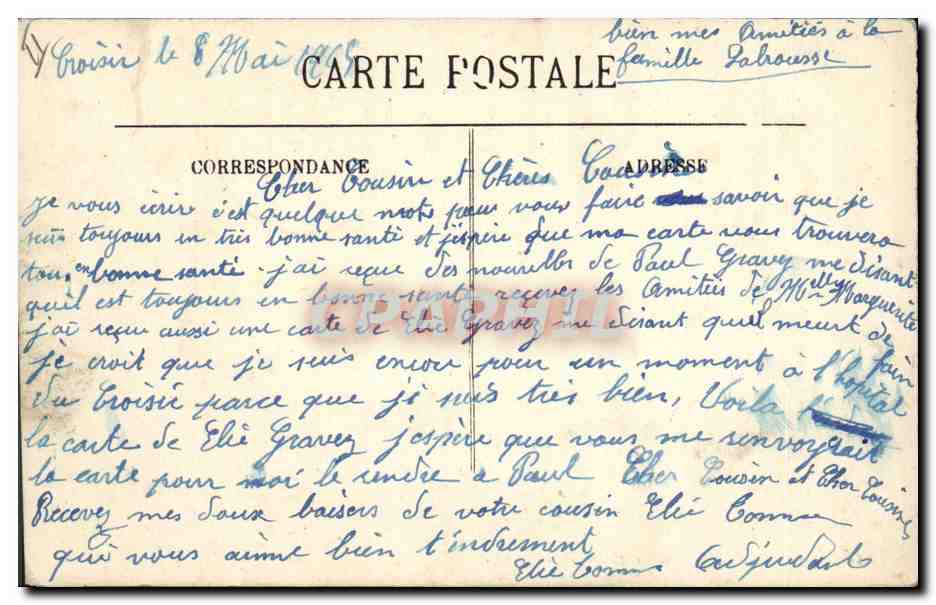 Croisic le 8 Mai 1915
bien mes Amitiés à la
famille Labrousse
CARTE POSTALE
CORRESPONDANCE
ADRESSE
Cher Cousin et Chères Cousine
Je vous écrire c'est quelque mots pour vous faire savoir que je
suis toujours en très bonne santé et j'espère que ma carte vous trouvera
tous en bonne santé. j'ai reçue des nouvelles de Paul Gravez me disant
quil est toujours en bonne santé reçevez les Amitiés de Melle Marguerite
j'ai reçue aussi une carte de Elie Gravez me disant quil meurt de faim
je croit que je suis encore pour un moment à l'hopital
du Croisic parce que je suis très bien, Voila
la carte de Elie Gravez j'espère que vous me renvoyrait
la carte pour moi le rendre a Paul Cher Cousin et Cher Cousine
Recevez mes doux baisers de votre cousin Elie
qui vous aime bien t'endrement
Elie